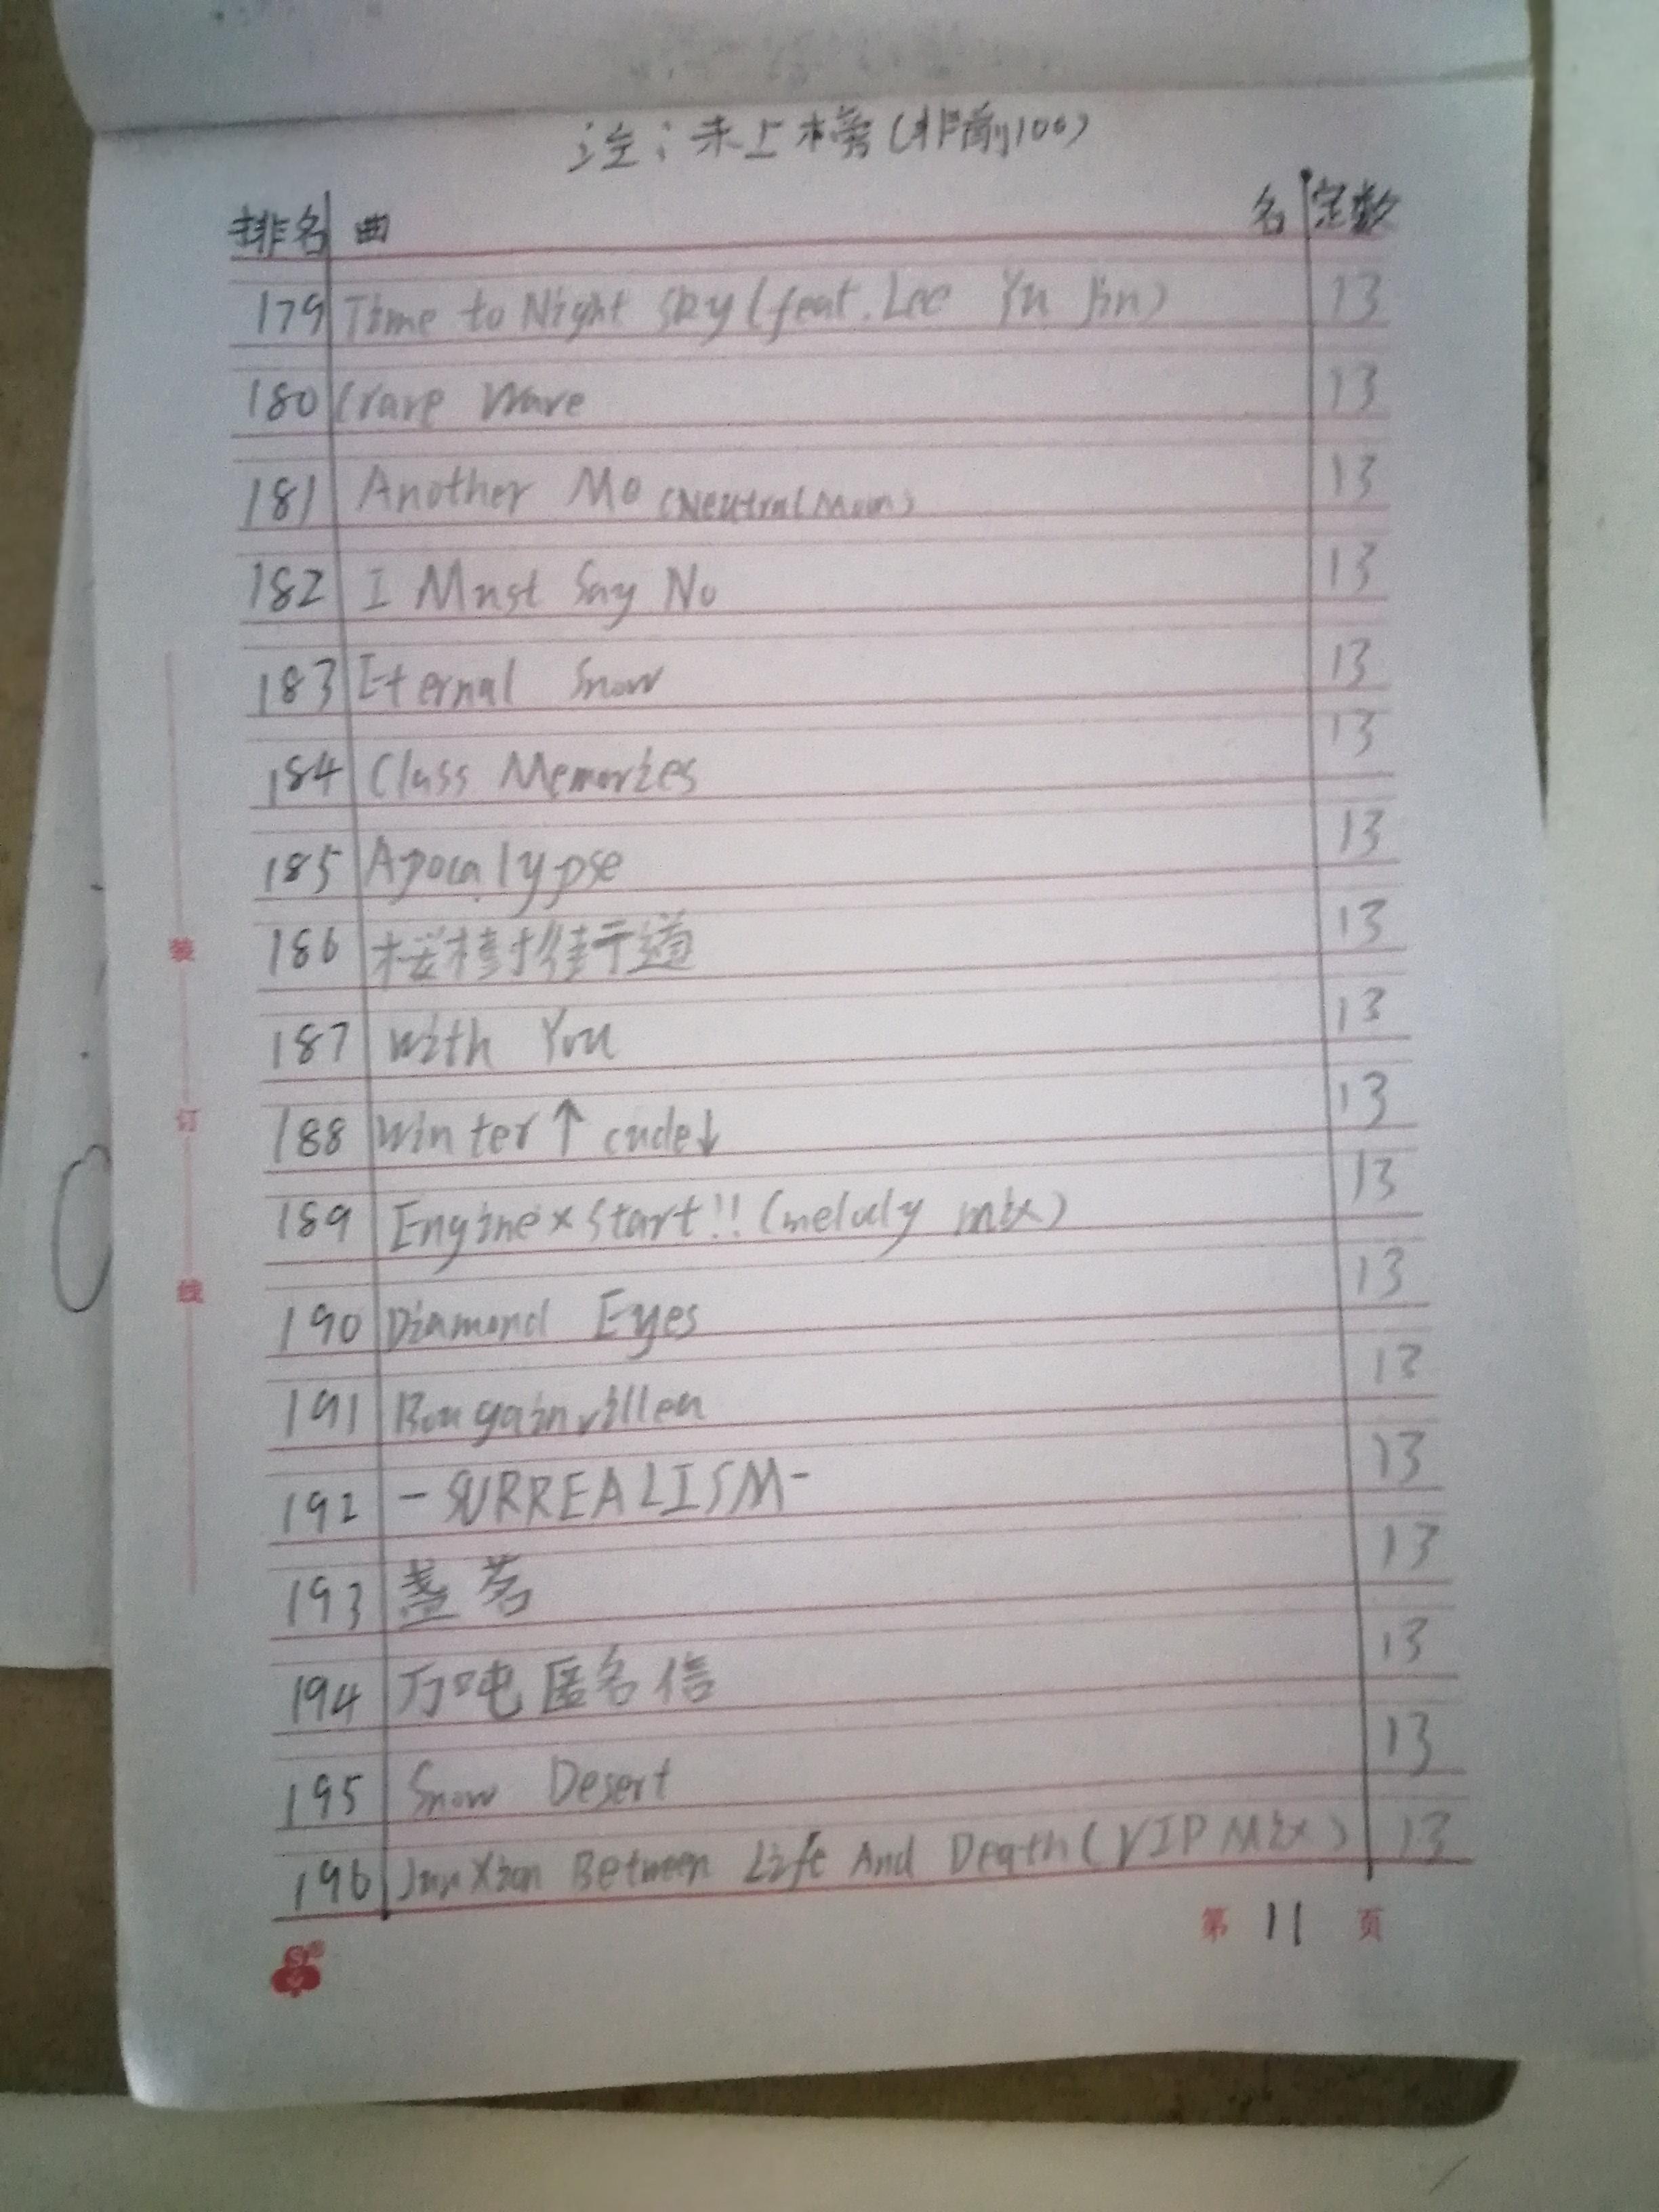 注:未上榜(非前100)
排名 曲 名 定数
179 Time to Night Sky (feat. Lee Yu Jin) 13
180 Crave Wave 13
181 Another Me (Neutral Moon) 13
182 I Must Say No 13
183 Eternal Snow 13
184 Class Memories 13
185 Apocalypse 13
186 樱树街道 13
187 With You 13
188 winter↑cude↓ 13
189 Engine×Start!! (melody mix) 13
190 Diamond Eyes 13
191 Bougainvillea 13
192 -SURREALISM- 13
193 盏茗 13
194 万吨匿名信 13
195 Snow Desert 13
196 JunXion Between Life And Death (VIP Mix) 13
第 11 页
装
订
线